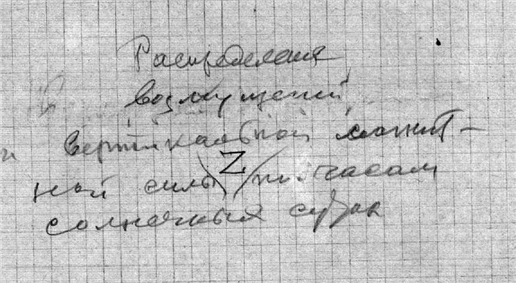 Распределения
возмущений
вертикальной магнит-
ной силы Z по часам
солнечных суток